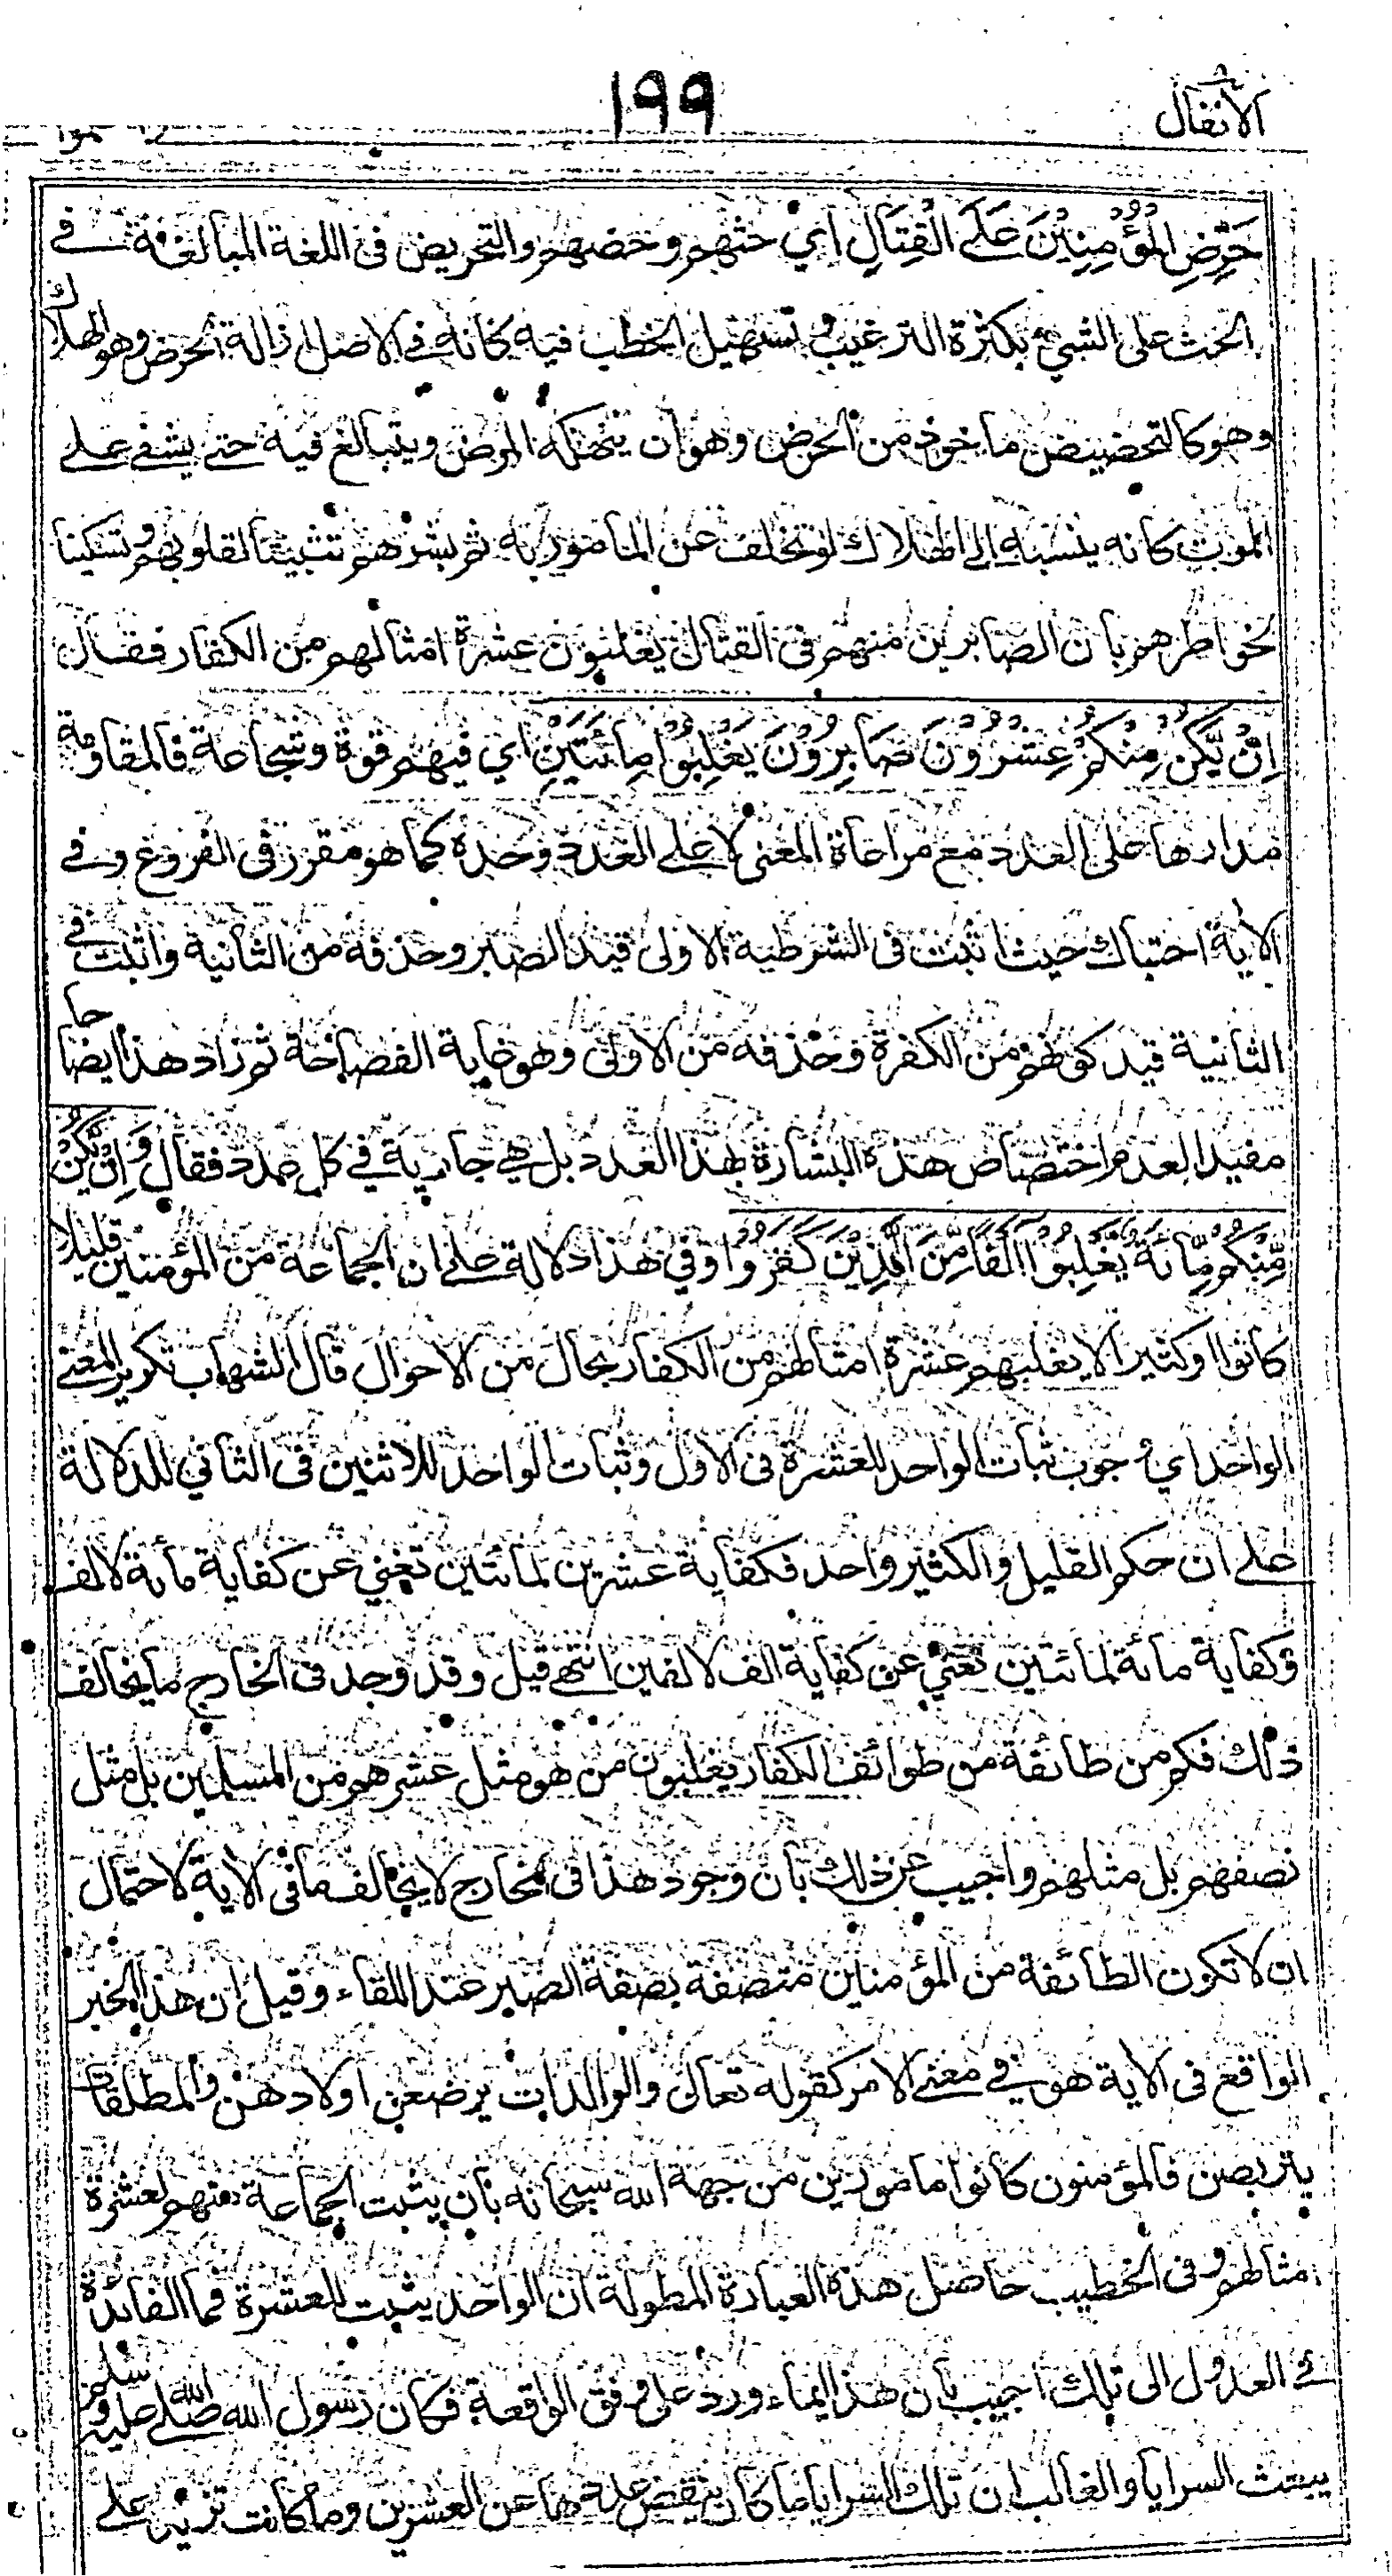 الأنفال
١٩٩
حَرِّضِ الْمُؤْمِنِيْنَ عَلَى الْقِتَالِ اي حثهم وحضهم والتحريض فى اللغة المبالغة في
الحث على الشيء بكثرة الترغيب وتسهيل الخطب فيه كانه في الاصل ازالة الحرض وهو الهلاك
وهو كالتحضيض ماخوذ من الحرض وهو ان ينهكه المرض ويتبالغ فيه حتى يشفي على
الموت كانه ينسبه الى الهلاك لو تخلف عن المامور به ثم بشرهم تثبيتا لقلوبهم وتسكينا
لخواطرهم بان الصابرين منهم فى القتال يغلبون عشرة امثالهم من الكفار فقال
اِنْ يَّكُنْ مِّنْكُمْ عِشْرُوْنَ صَابِرُوْنَ يَغْلِبُوْا مِائَتَيْنِ اي فيهم قوة وشجاعة فالمقاومة
مدارها على العدد مع مراعاة المعنى لا على العدد وحده كما هو مقرر فى الفروع وفي
الآية احتباك حيث اثبت فى الشرطية الاولى قيد الصبر وحذفه من الثانية واثبت في
الثانية قيد كونهم من الكفرة وحذفه من الاولى وهو غاية الفصاحة ثم زاد هذا ايضاحا
مفيدا لعدم اختصاص هذه البشارة بهذا العدد بل هي جارية في كل عدد فقال وَاِنْ يَّكُنْ
مِّنْكُمْ مِّائَةٌ يَّغْلِبُوْا اَلْفًا مِّنَ الَّذِيْنَ كَفَرُوْا وفي هذا دلالة على ان الجماعة من المؤمنين قليلا
كانوا او كثيرا لا يغلبهم عشرة امثالهم من الكفار بحال من الاحوال قال الشهاب تكرير المعنى
الواحد اي وجوب ثبات الواحد للعشرة فى الاول وثبات الواحد للاثنين فى الثاني للدلالة
على ان حكم القليل والكثير واحد فكفاية عشرين لمائتين تغني عن كفاية مائة لالف
وكفاية مائة لمائتين تغني عن كفاية الف لالفين انتهى قيل وقد وجد فى الخارج ما يخالف
ذلك فكم من طائفة من طوائف الكفار يغلبون من هو مثل عشرهم من المسلمين بل مثل
نصفهم بل مثلهم واجيب عن ذلك بان وجود هذا فى الخارج لا يخالف ما فى الآية لاحتمال
ان لا تكون الطائفة من المؤمنين متصفة بصفة الصبر عند اللقاء وقيل ان هذا الخبر
الواقع فى الآية هو في معنى الامر كقوله تعالى والوالدات يرضعن اولادهن والمطلقات
يتربصن فالمؤمنون كانوا مامورين من جهة الله سبحانه بان يثبت الجماعة منهم لعشرة
امثالهم وفى الخطيب حاصل هذه العبارة المطولة ان الواحد يثبت للعشرة فما الفائدة
في العدول الى تلك اجيب بان هذا انما ورد على وفق الواقعة فكان رسول الله صلى الله عليه وسلم
يبعث السرايا والغالب ان تلك السرايا ما كان ينقص عددها عن العشرين وما كانت تزيد على